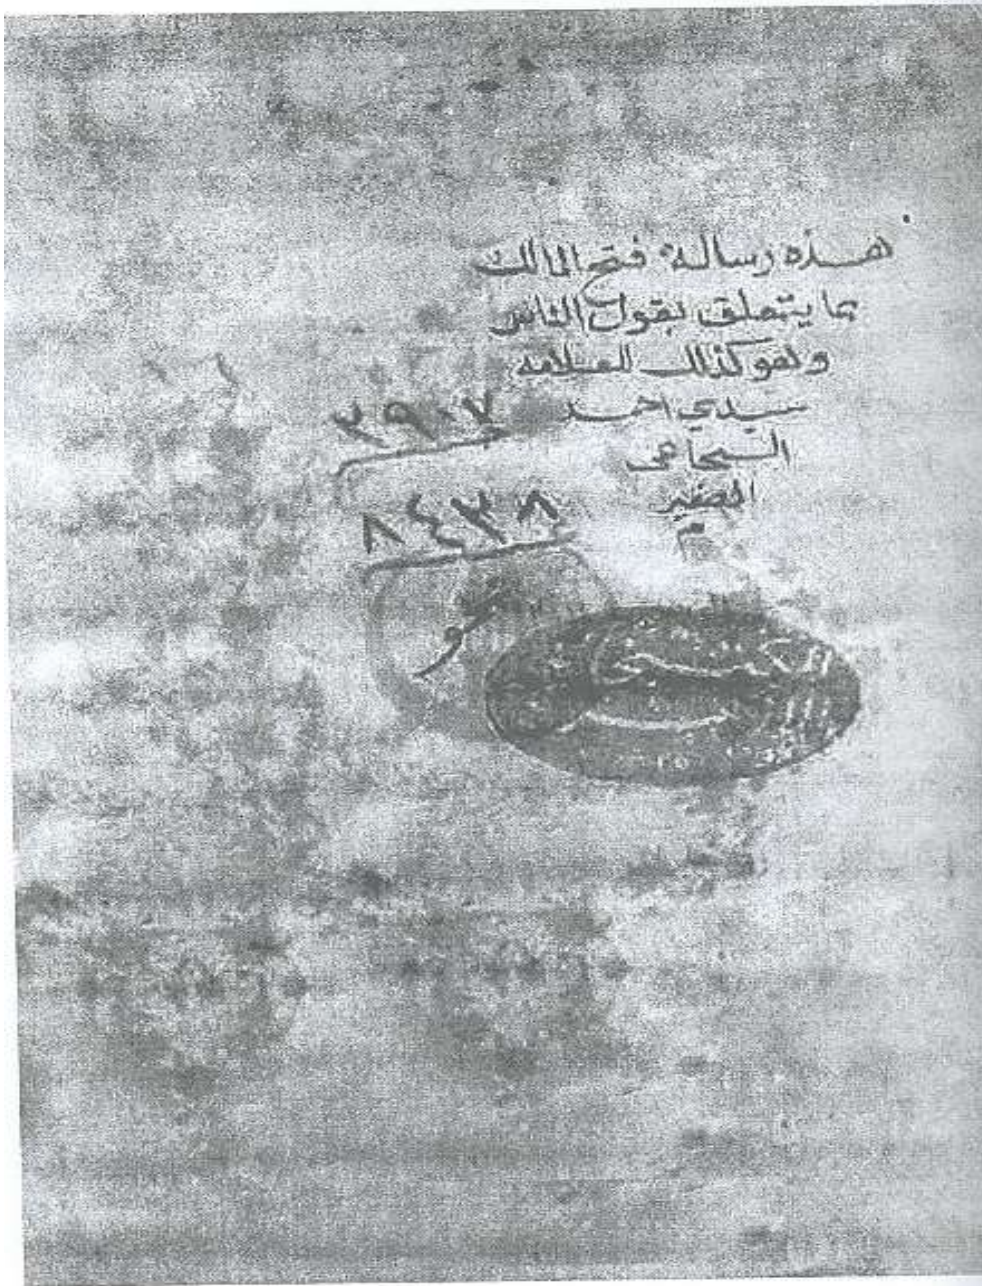 هذه رسالة فتح المالك
بما يتعلق بقول الناس
وهو كذلك للعلامه
سيدي احمد
السجاعى
الصغير
م
٢٩٠٧
٨٤٣٨
نحو